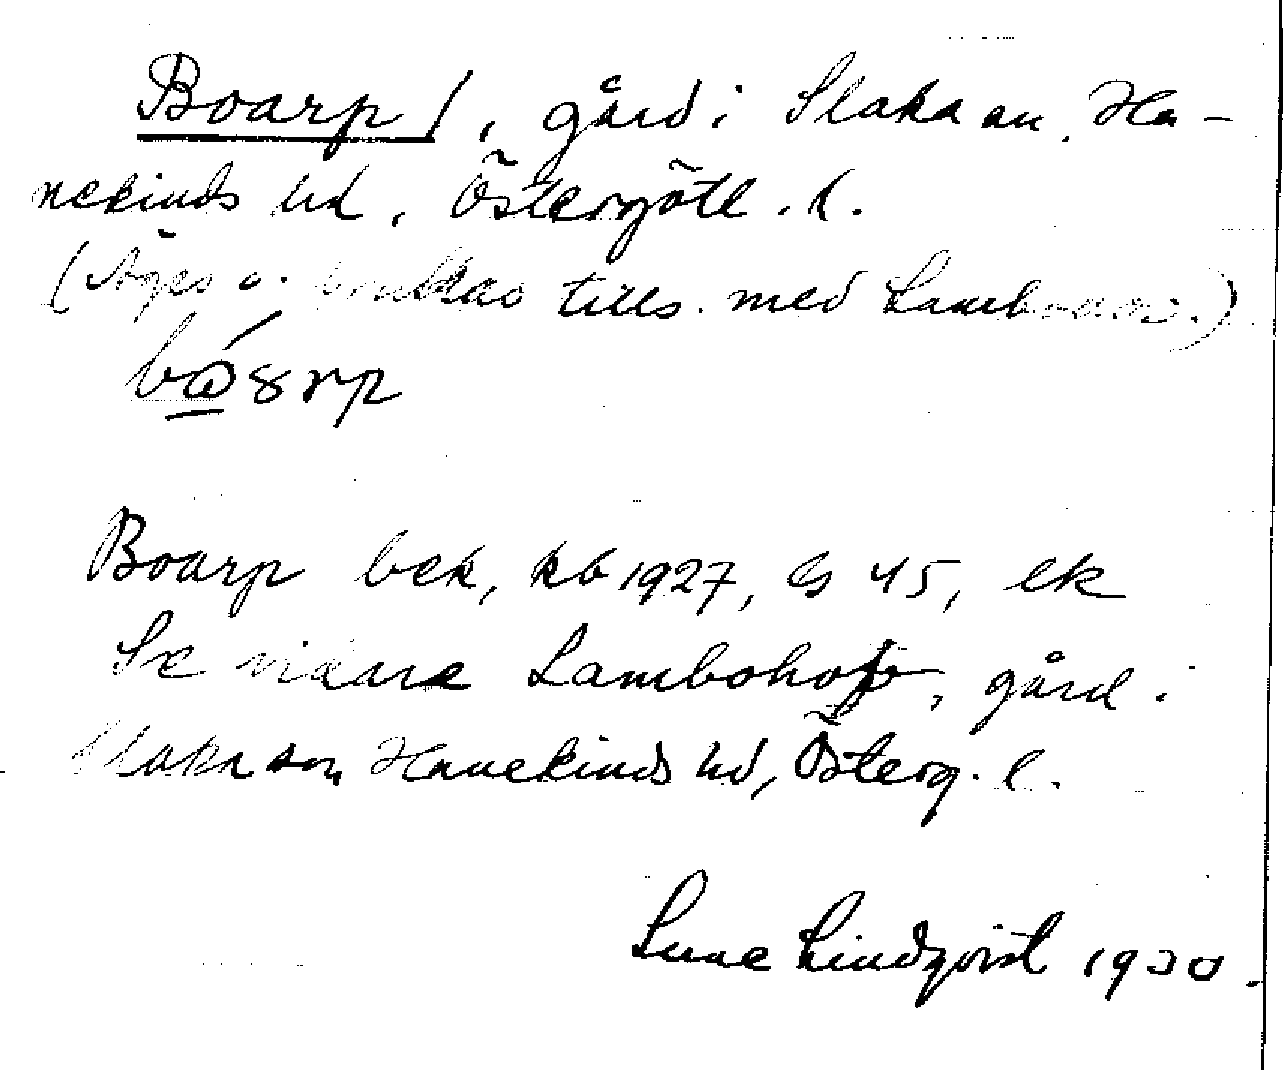 Boarp /, gård i Slaka sn. Ha-
nekinds hd, Östergötl. l.
(Äges o. brukas tills. med Lamboh.)
Boarp bek, kb 1927, Gs 45, ek
Se vidare Lambohof, gård i
Slaka sn, Hanekinds hd, Österg. l.
Sune Lindqvist 1930.